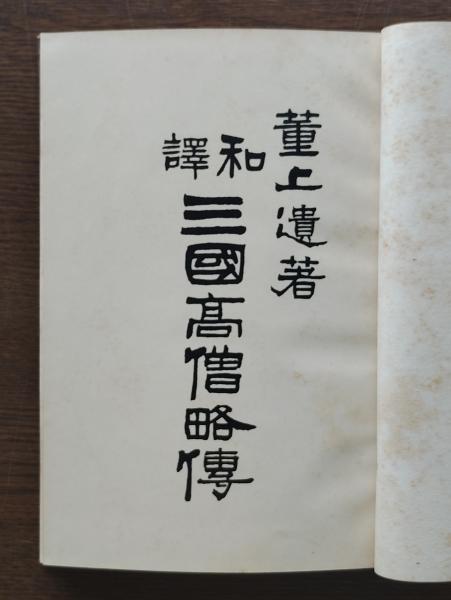 董上遺著
和譯
三國高僧略傳